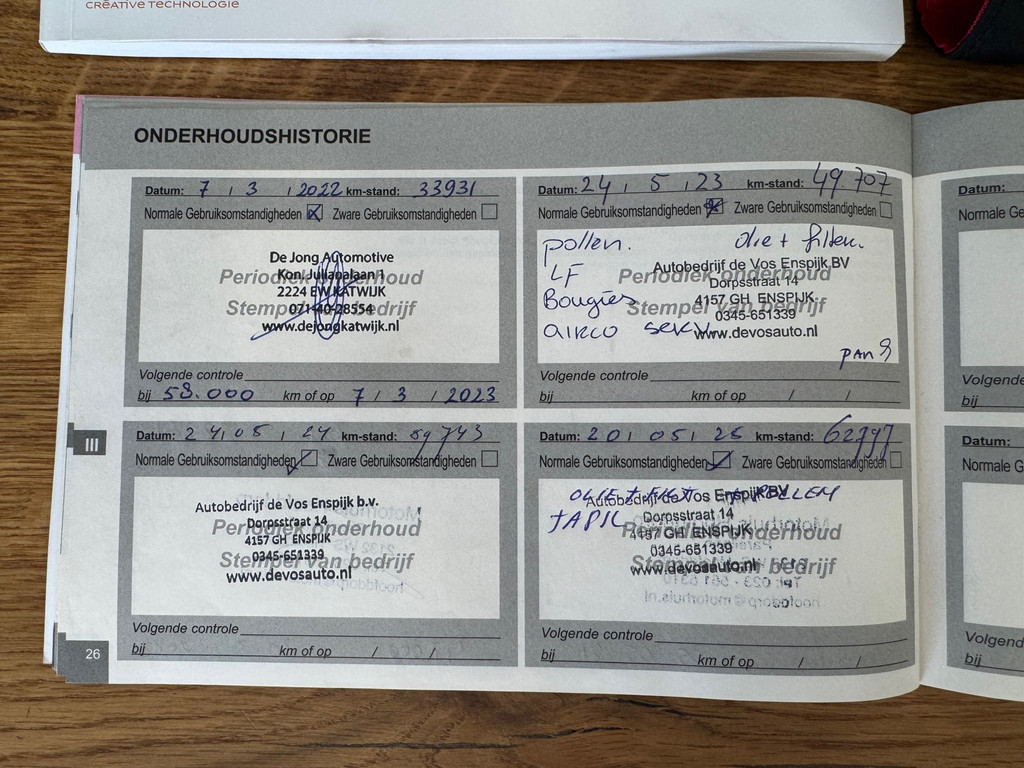 CREATIVE TECHNOLOGIE
ONDERHOUDSHISTORIE
Datum: 7 / 3 / 2022 km-stand: 33931
Normale Gebruiksomstandigheden Zware Gebruiksomstandigheden
De Jong Automotive
Kon. Julianalaan 1
Periodiek onderhoud
2224 EW KATWIJK
Stempel van bedrijf
071-40-28554
www.dejongkatwijk.nl
Volgende controle
bij 58.000 km of op 7 / 3 / 2023
Datum: 24 / 5 / 23 km-stand: 49.707
Normale Gebruiksomstandigheden Zware Gebruiksomstandigheden
pollen. olie + filter.
LF
Bougies
airco serv.
Autobedrijf de Vos Enspijk BV
Periodiek onderhoud
Dorpsstraat 14
4157 GH ENSPIJK
Stempel van bedrijf
0345-651339
www.devosauto.nl
Volgende controle
bij km of op / /
Datum: 24 / 05 / 24 km-stand: 59743
Normale Gebruiksomstandigheden Zware Gebruiksomstandigheden
Autobedrijf de Vos Enspijk b.v.
Dorpsstraat 14
Periodiek onderhoud
4157 GH ENSPIJK
0345-651339
Stempel van bedrijf
www.devosauto.nl
Volgende controle
bij km of op / /
Datum: 20 / 05 / 25 km-stand: 62797
Normale Gebruiksomstandigheden Zware Gebruiksomstandigheden
OLIE + POLLEN
Autobedrijf de Vos Enspijk BV
Dorpsstraat 14
Periodiek onderhoud
4157 GH ENSPIJK
0345-651339
Stempel van bedrijf
www.devosauto.nl
Volgende controle
bij km of op / /
III
26
Datum:
Normale Ge
Volgende
bij
Datum:
Normale G
Volgend
bij